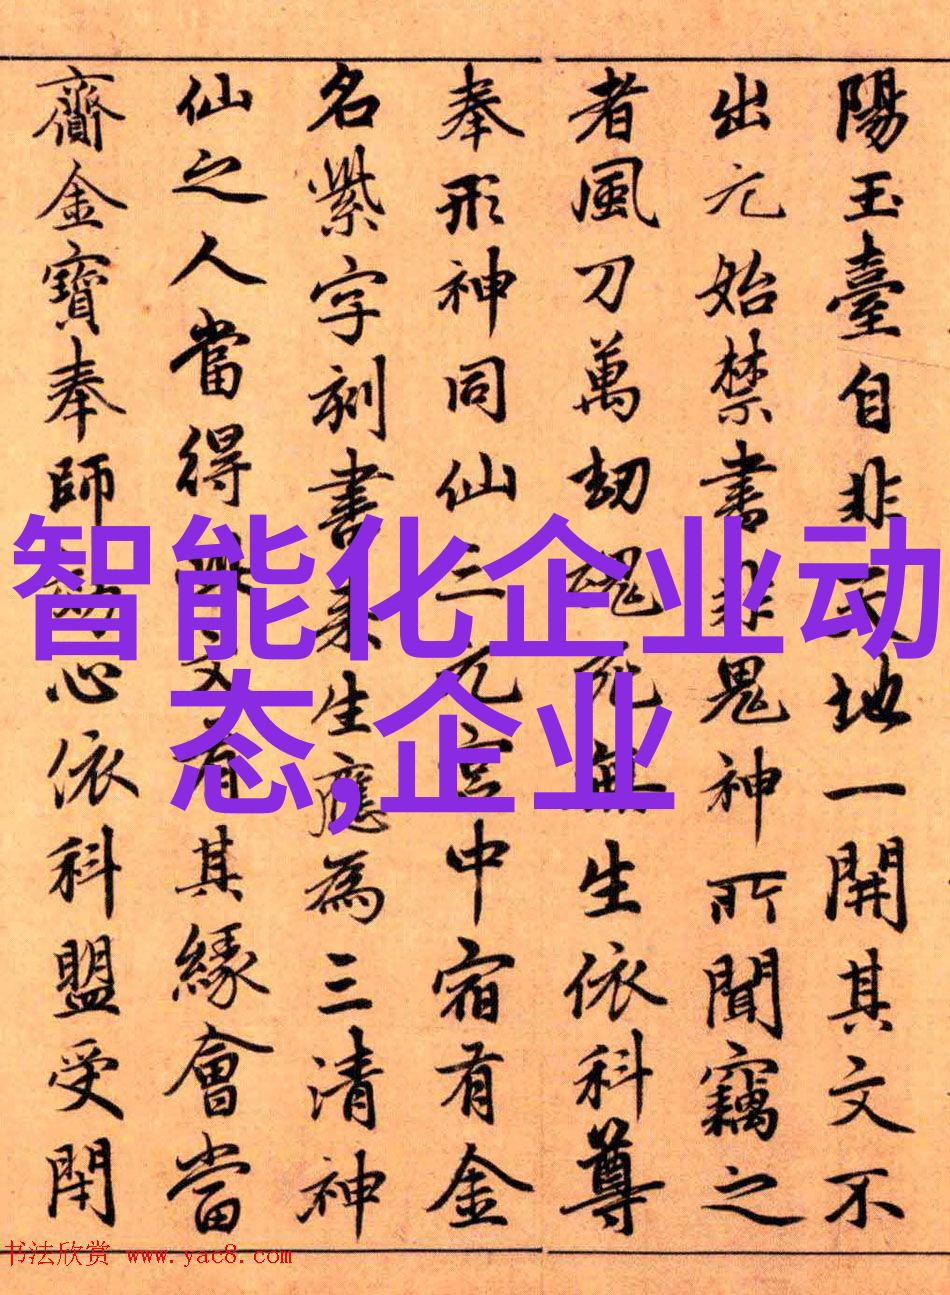 陽玉臺自非天地一開其文不
出元始禁書非鬼神所聞竊之
者風刀萬劫魂死無生依科尊
奉形神同仙三元宮中宿有金
名紫字刻書來生應為三清神
仙之人當得此文有其緣會當
齎金寶奉師効心依科盟受閇
智能化企业动
态,企业
书法欣赏 www.yac8.com